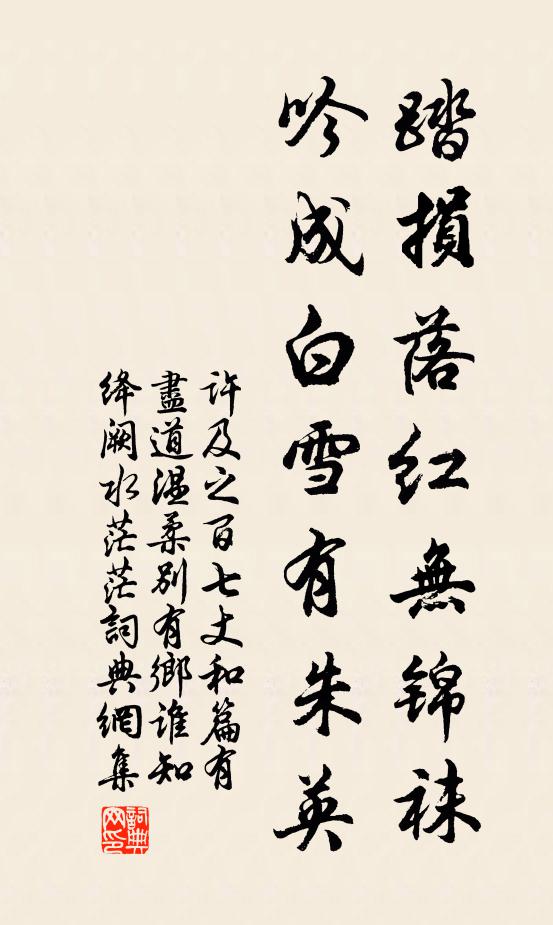 踏損落紅無錦袜
吟成白雪有朱英
許及之百七丈和篇有
盡道温柔別有鄉誰知
絳闕水茫茫詞典網集
詞典网印